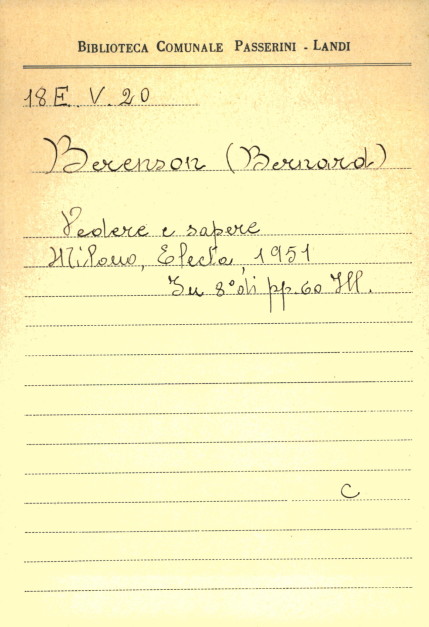 BIBLIOTECA COMUNALE PASSERINI - LANDI
18 E. V. 20
Berenson (Bernard)
Vedere e sapere
Milano, Electa, 1951
In 8° di pp. 60 Ill.
C